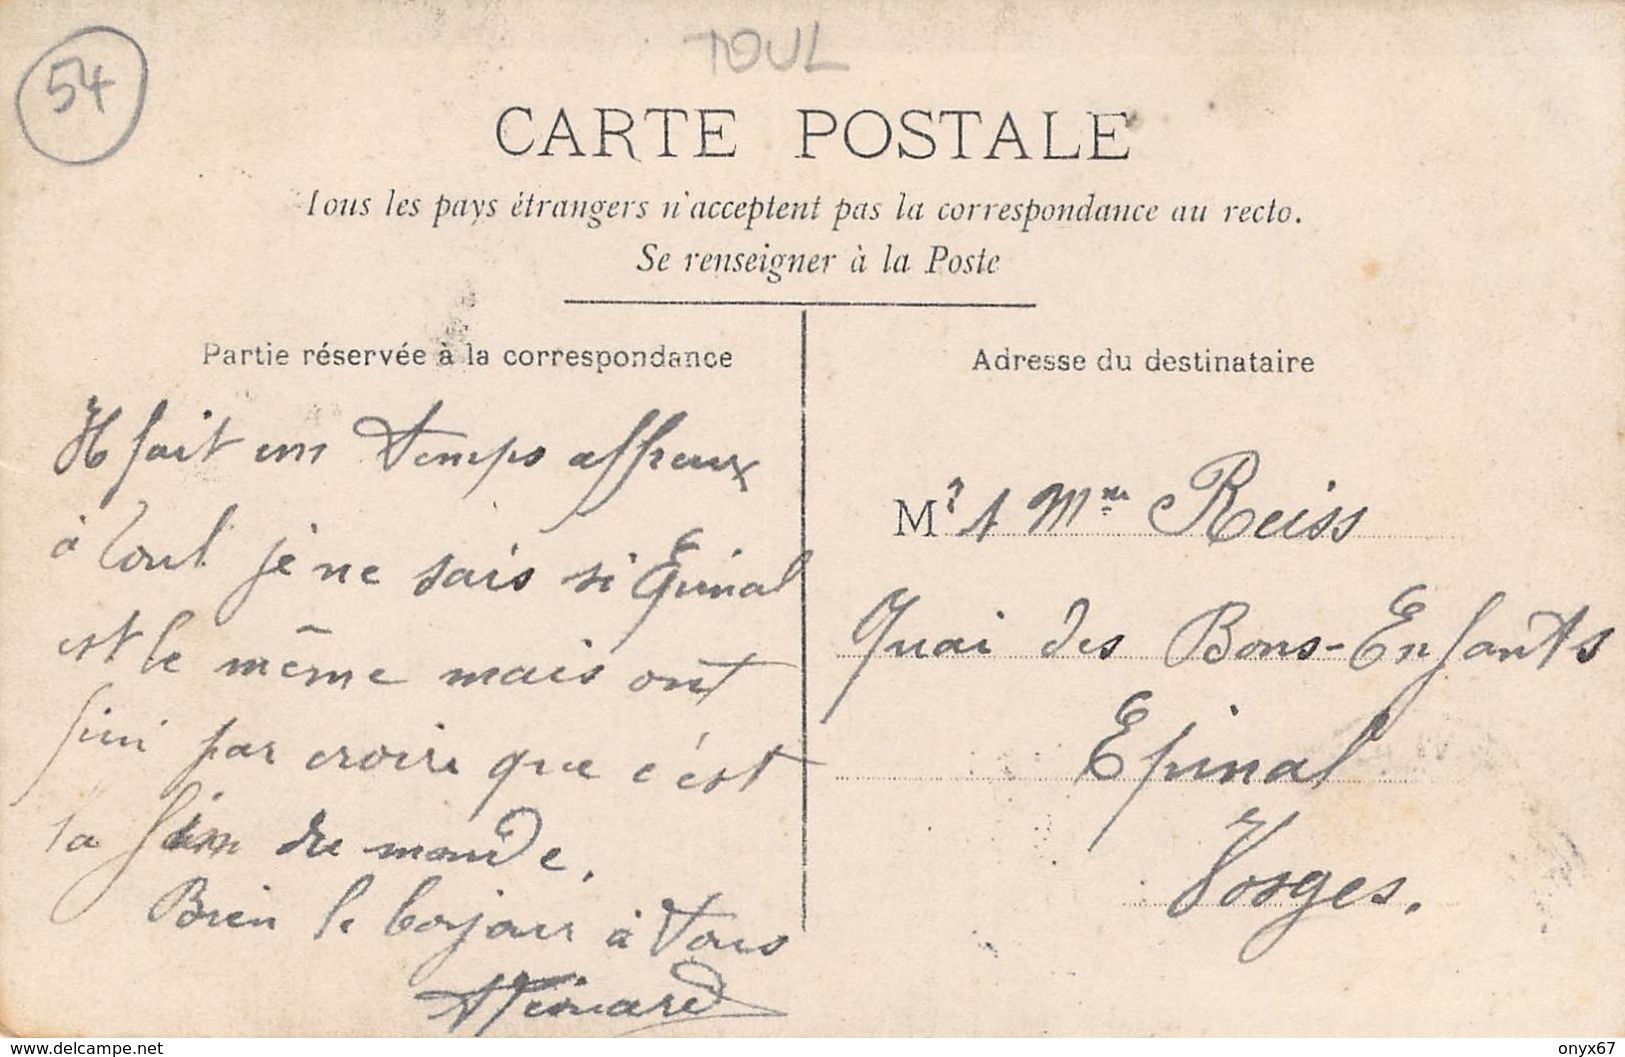 54
TOUL
CARTE POSTALE
Tous les pays étrangers n'acceptent pas la correspondance au recto.
Se renseigner à la Poste
Partie réservée à la correspondance
Il fait un temps affreux
à Toul je ne sais si Epinal
est le même mais ont
fini par croire que c'est
la fin du monde.
Bien le bojour à tous
Adresse du destinataire
Mr & Mme Reiss
Quai des Bons-Enfants
Epinal
Vosges.
https://www.delcampe.net
onyx67